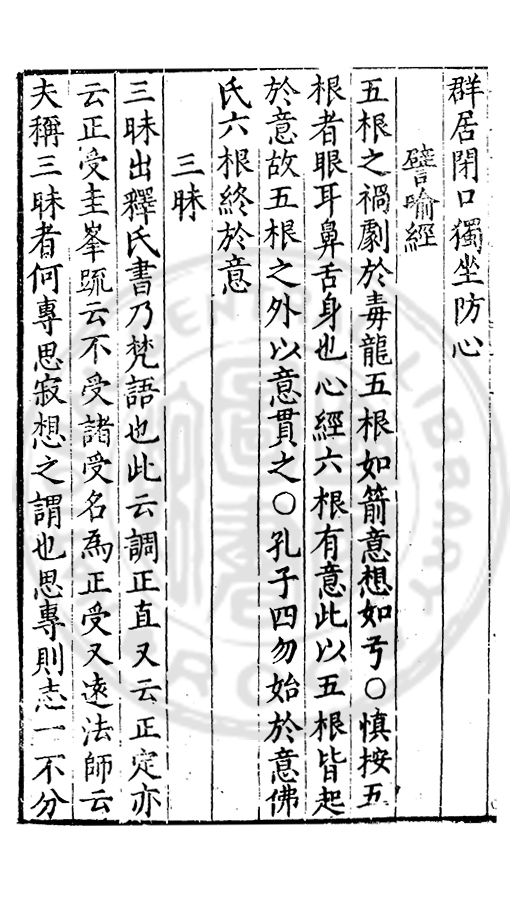 群居閉口獨坐防心
譬喻經
五根之禍劇於毒龍五根如箭意想如弓○慎按五
根者眼耳鼻舌身也心經六根有意此以五根皆起
於意故五根之外以意貫之○孔子四勿始於意佛
氏六根終於意
三昧
三昧出釋氏書乃梵語也此云調正直又云正定亦
云正受圭峯䟽云不受諸受名爲正受又遠法師云
夫稱三昧者何專思寂想之謂也思專則志一不分